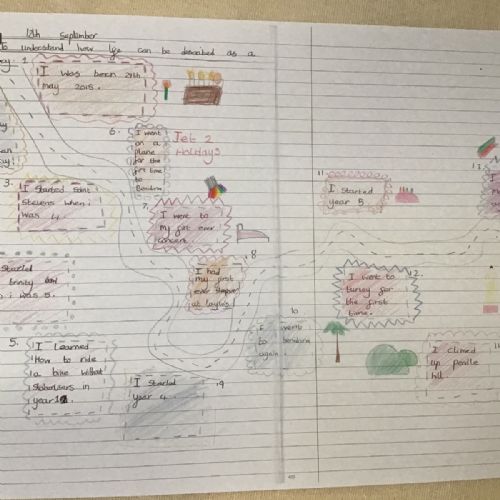 12th September
to understand how life can be described as a
1.
I was born 29th
may 2015.
3.
I started saint
stevens when i
was 4.
Started
trinity
i was 5.
5.
I learned
How to ride
a bike without
stabalisers in
year 1.
6.
I went
on a
plane
for the
first time
to
Benidorm
Jet 2
Holidays
7.
I went to
my first ever
concert.
8
I had
my first
ever sleepover
at Layla's
9
I started
year 4.
10
I went
to benidorm
again.
11
I started
year 5
12.
I went to
turkey for
the first
time.
13
I climed
up pendle
hill